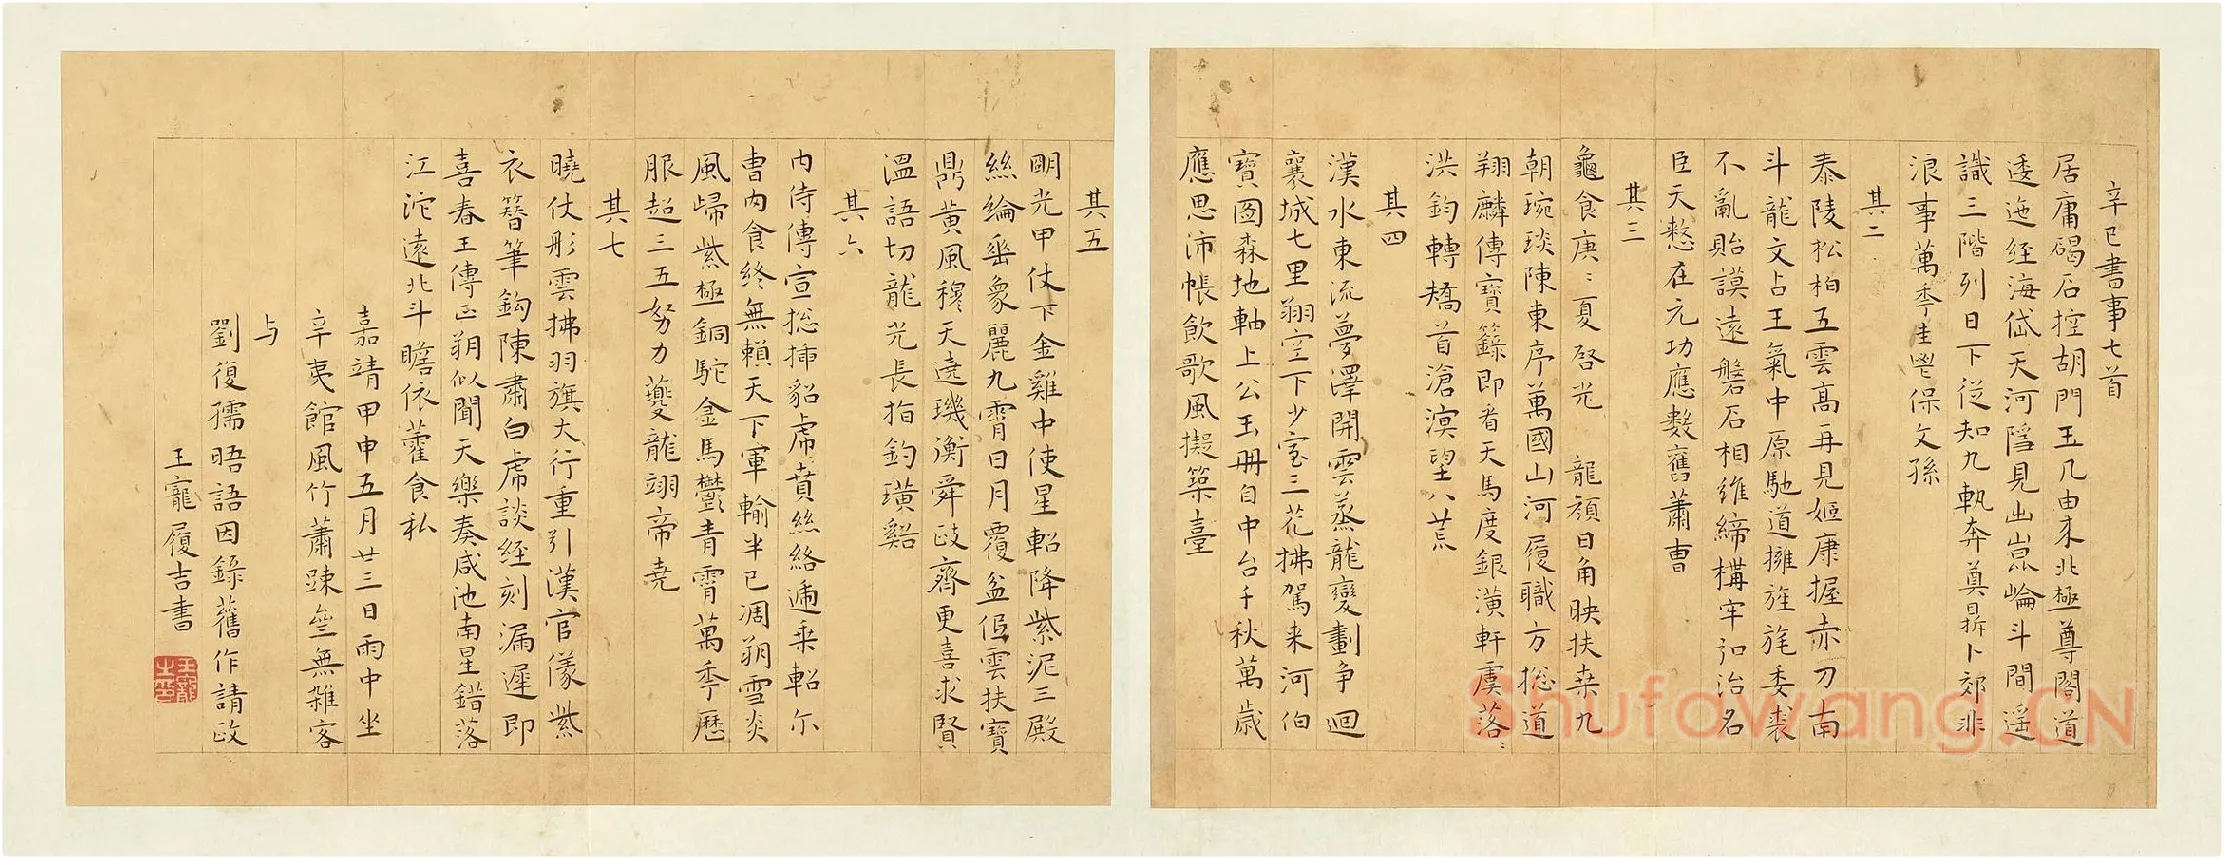 辛巳書事七首
居庸碣石控胡門玉几由来北極尊閣道
逶迤経海岱天河隱見出崑崘斗間遥
識三階列日下從知九執奔莫拆卜郊非
浪事萬季圭鬯保文孫
其二
泰陵松柏五雲髙再見姬康握赤刀南
斗龍文占王氣中原馳道擁旌旄委裘
不亂貽謨遠磐石相維締構牢弘治名
臣天憖在元功應數舊蕭曹
其三
龜食庚〻夏啓光龍顔日角映扶桒九
朝琬琰陳東序萬國山河履職方揔道
翔麟傳寶籙即看天馬度銀潢軒虞落〻
洪鈞轉矯首滄溟望八荒
其四
漢水東流夢澤開雲蒸龍變劃争迴
襄城七里翔空下少室三花拂駕来河伯
寶圖森地軸上公玉册自中台千秋萬歲
應思沛帳飲歌風擬築臺
其五
明光甲仗下金雞中使星軺降紫泥三殿
絲綸垂象麗九霄日月覆盆伍雲扶寶
鼎黄風穆天遶璣衡舜政齊更喜求賢
溫語切龍光長指釣璜谿
其六
内侍傳宣揔插貂虎賁絲絡遍乗軺尔
曹内食終無賴天下軍輸半已凋朔雪炎
風歸紫極銅駝金馬鬱青霄萬季歷
服超三五努力夔龍翊帝堯
其七
曉仗彤雲拂羽旗大行重引漢官儀紫
衣簪筆鈎陳肅白虎談経刻漏遲即
喜春王傳正朔似聞天樂奏咸池南星錯落
江沱遠北斗瞻依藿食私
嘉靖甲申五月廿三日雨中坐
辛夷館風竹蕭踈㘴無雜客
与
劉復孺晤語因錄舊作請政
王寵履吉書
王寵